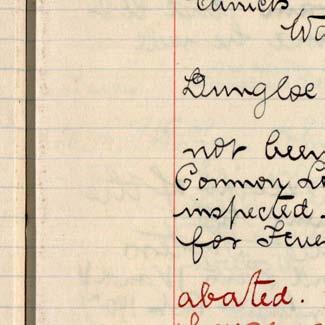 Dungloe
not been
Common Lo
inspected.
for Feve
abated.